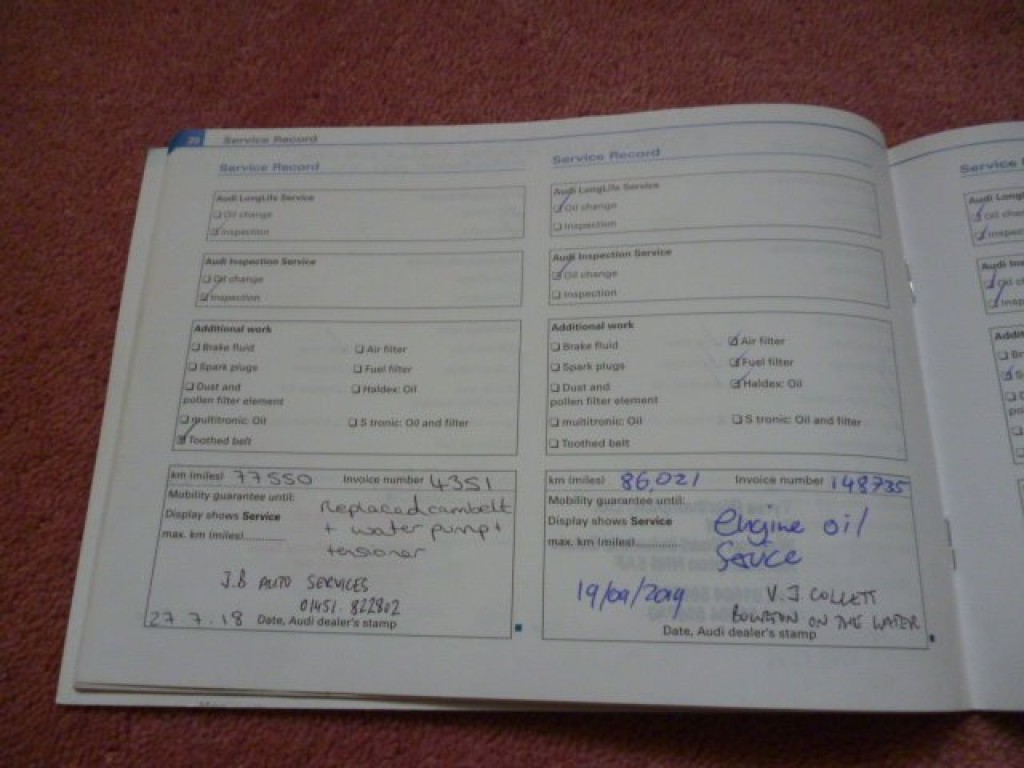 20 Service Record
Service Record
Audi LongLife Service
Oil change
Inspection
Audi Inspection Service
Oil change
Inspection
Additional work
Brake fluid
Air filter
Spark plugs
Fuel filter
Dust and
pollen filter element
Haldex: Oil
multitronic: Oil
S tronic: Oil and filter
Toothed belt
km (miles) 77550 Invoice number 4351
Mobility guarantee until:
Replaced cambelt
Display shows Service
+ water pump +
max. km (miles)............
tensioner
J.B AUTO SERVICES
01451. 822802
27.7.18 Date, Audi dealer's stamp
Service Record
Audi LongLife Service
Oil change
Inspection
Audi Inspection Service
Oil change
Inspection
Additional work
Brake fluid
Air filter
Spark plugs
Fuel filter
Dust and
pollen filter element
Haldex: Oil
multitronic: Oil
S tronic: Oil and filter
Toothed belt
km (miles) 86,021 Invoice number 148735
Mobility guarantee until:
Display shows Service
engine oil
max. km (miles)............
Service
19/09/2019
V.J COLLETT
BOURTON ON THE WATER
Date, Audi dealer's stamp
Service
Audi
Oil